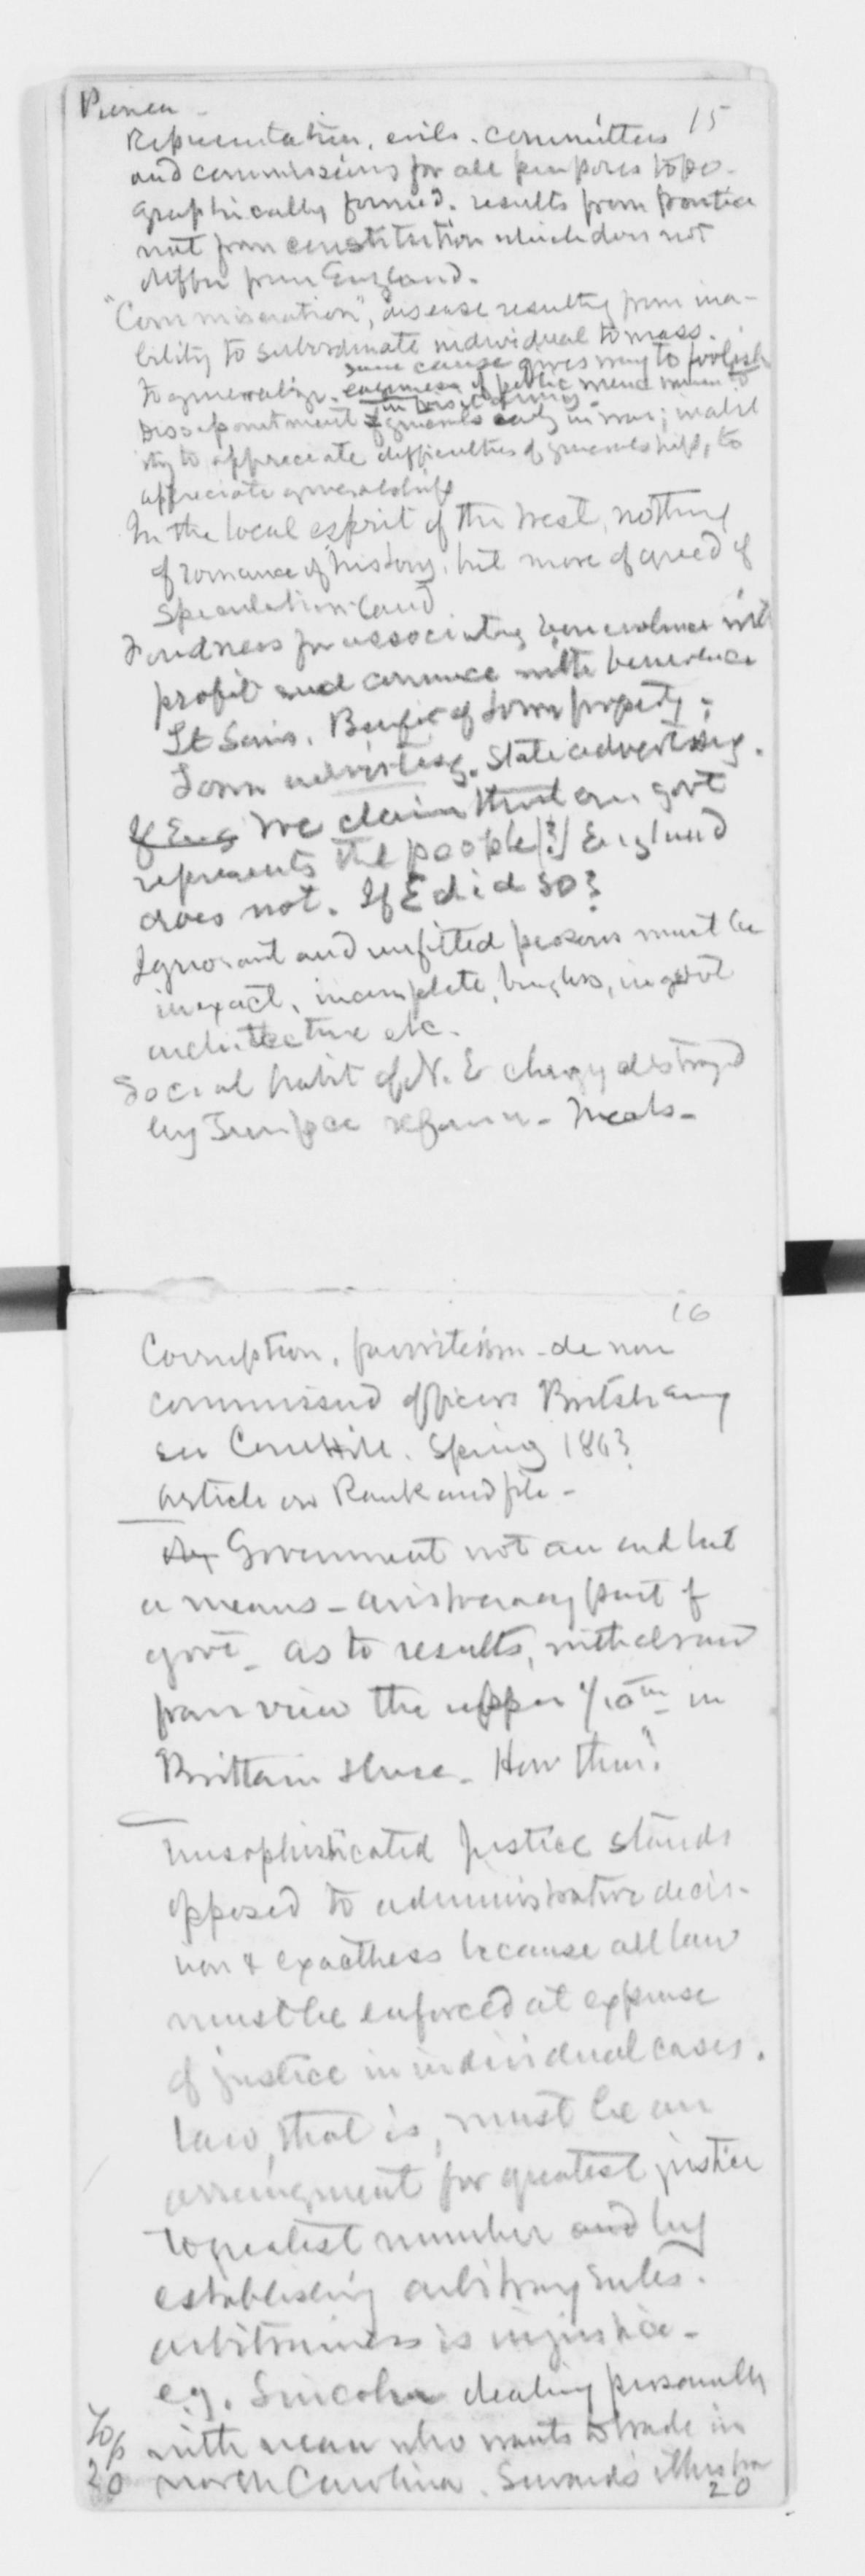 15
Representation, evils. Committees
and commissions for all purposes topo-
graphically formed. results from practice
not from constitution which does not
differ from England.
"Commiseration", disease resulting from ina-
bility to subordinate individual to mass.
same cause gives way to foolish
to generalize. eagerness of public mind
Disappointment of generals early in war; inabil
ity to appreciate difficulties of generalship, to
appreciate generalship
In the local esprit of the West, nothing
of romance of history, but more of greed of
speculation land
Fondness for associating benevolence with
profit and commerce with benevolence
of town property;
Town advertising. State advertising.
If Eng We claim that our govt
represents the people [?] England
does not. If E did so?
Ignorant and unfitted persons must be
inexact, incomplete, in govt
architecture etc.
Social habit of N. E clergy destroyed
by Temp'ce reform - Meals -
16
Corruption, favoritism - de non
commissiond officers British army
see Cornhill. Spring 1863
Article on Rank and file -
Government not an end but
a means - aristocracy part of
govt - as to results, withdrawn
from view the upper 1/10th in
Brittain & here - How then?
Unsophisticated justice stands
opposed to administrative decis-
ion & exactness because all law
must be enforced at expense
of justice in individual cases.
Law, that is, must be an
arrangment for greatest justice
to greatest number and by
establishing arbitrary rules.
arbitrariness is injustice -
e.g. Lincoln dealing personally
with man who wants to trade in
North Carolina. Seward's illustra
To p
20
20